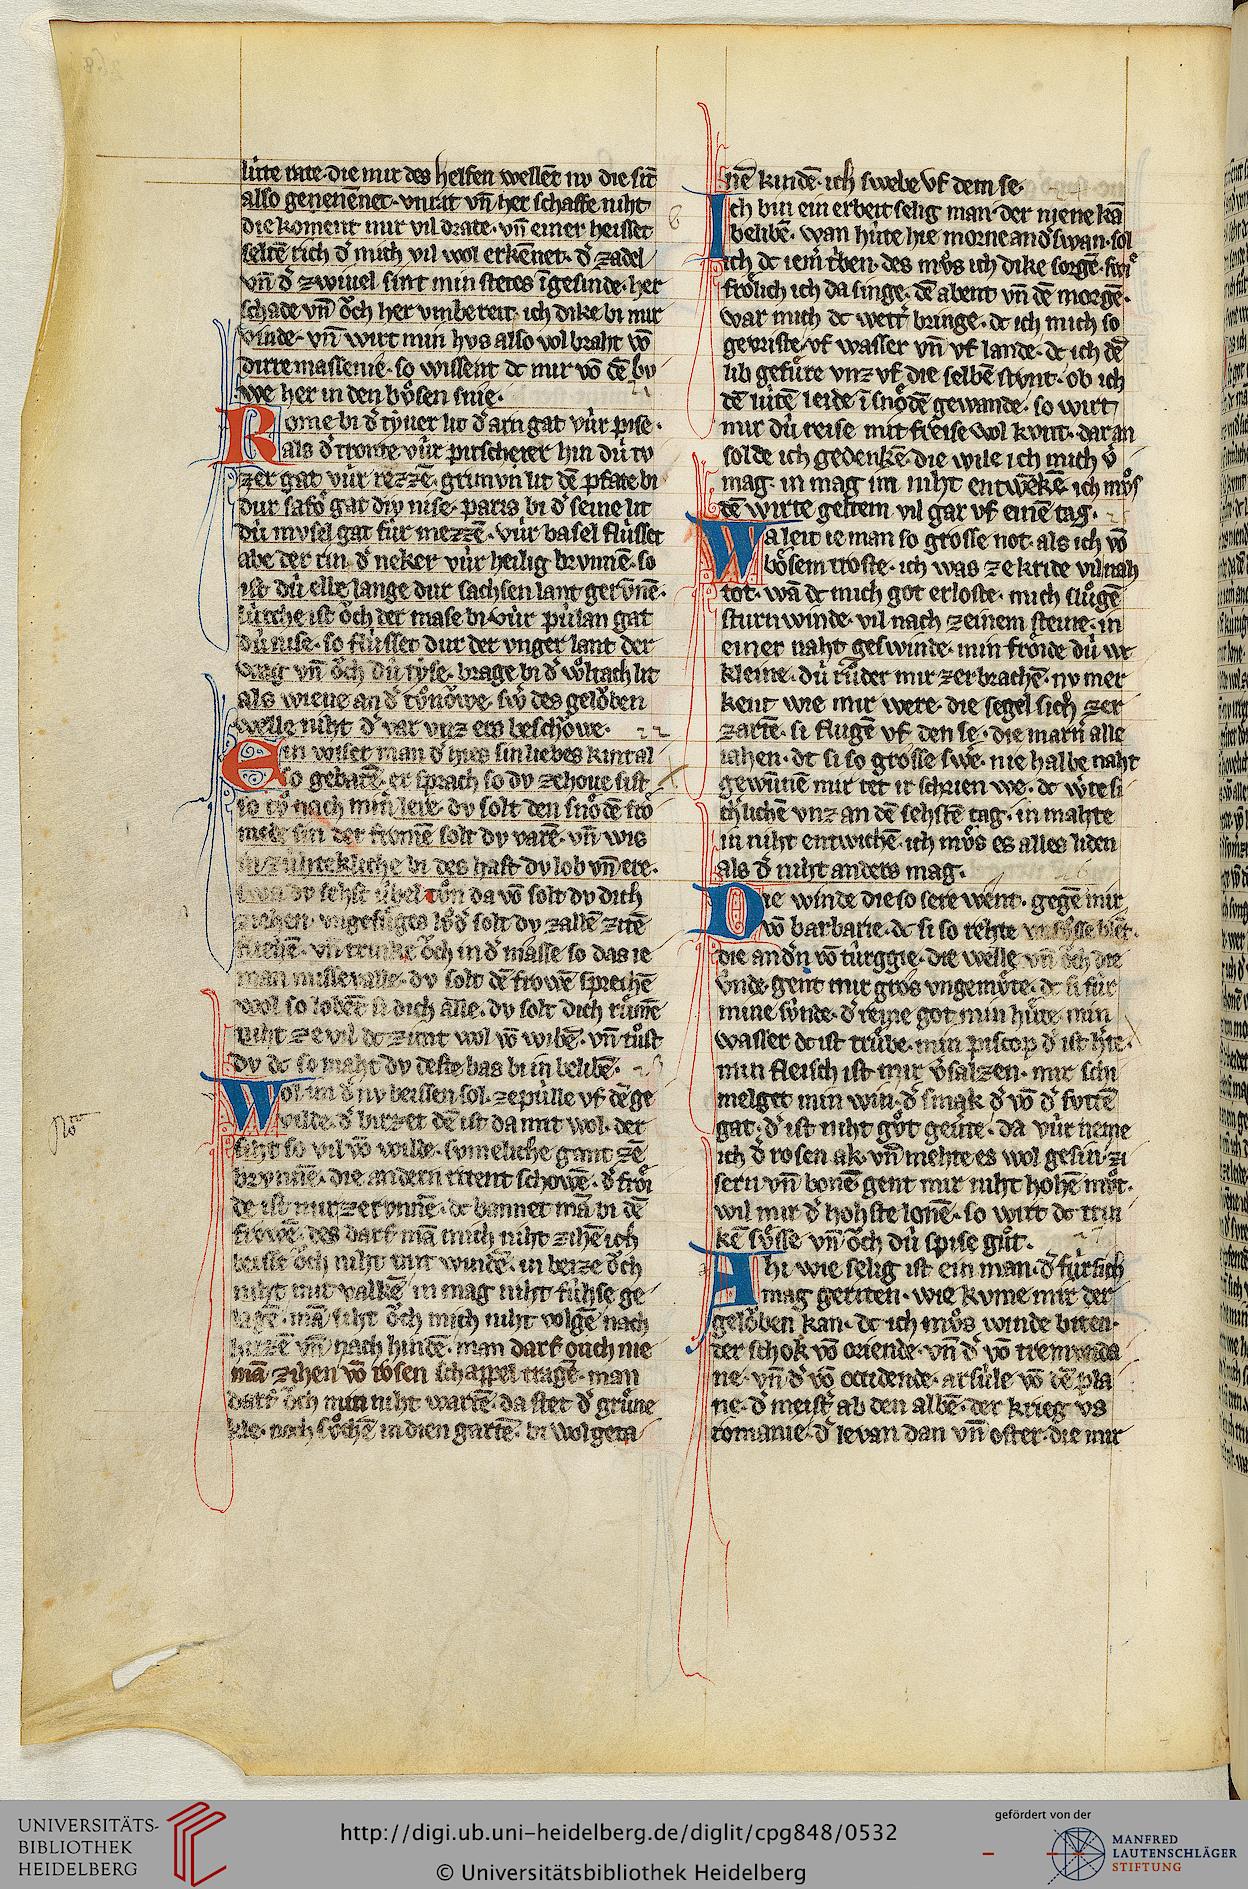 lùte rate. die mir des helfen wellēt nv die sīt
also genennet. vnrat vn̄ her schaffe niht
die koment mir vil drate. vn̄ einer heisset
seltē rich d͛ mich vil wol erkēnet. d͛ zadel
vn̄ d͛ zwiuel sint min stetes īgesinde. her
schade vn̄ ǒch her vmbereit. ich dike bi mir
vinde. vn̄ wirt min hvs also vol braht vō
dirre massenie. so wissent dc mir vō dē bv
we her in den bv̊sen snie.
Rome bi d͛ tyuer lit d͛ arn gat vùr pise.
als d͛ tronte vùr pitscherer hin dù tv
zer gat vùr rezzē. grimvn lit dē pfate bi
dur safǒ gat div nise. paris bi d͛ seine lit
dù mvsel gat fùr mezzē. vùr basel flùsset
abe der rin. d͛ neker vùr heilig brvnnē. so
ist dù elle lange dur sachsen lant gervnē.
lùtche ist ǒch der mase bi. vùr pùlan gat
dù nise. so flùsset dur der vnger lant der
wag vn̄ ǒch dù tyse. brage bi d͛ wǒltach lit
als wiene an d͛ tv̊nǒwe. sw͛ des gelǒben
welle niht d͛ var vnz ers beschǒwe.
Ein wiser man d͛ hies sin liebes kint al
so gebarē. er sprach so dv ze houe sist
so tv̊ nach min͛ lere. dv solt den snǒdē frō
mede sin der fromē solt dv varē. vn̄ wis
in zùhtekliche bi des hast dv lob vn̄ ere.
swa dv sehst ùbel tv̊n da vō solt dv dich
ziehen. vngefůges lvd͛ solt dv zallē zitē
fliehē. vn̄ trinke ǒch in d͛ masse so das ie
man missevalle. dv solt dē frowē sprechē
wol so lobēt si dich alle. dv solt dich rùmē
niht ze vil dc zimt wol vō wibē. vn̄ tůst
dv dc so maht dv deste bas bi in belibē.
Wol im d͛ nv beissen sol. ze pùlle vf dē ge
vilde. d͛ birzet dē ist da mit wol. der
siht so vil vō wilde. svmeliche gant zē
brvnnē. die andern ritent schowē. d͛ frǒi
de ist mir zervnnē. dc bannet mā bi dē
frowē. des darf mā mich niht zihē ich
beisse ǒch niht mit windē. in beize ǒch
niht mit valkē in mag niht fùhse ge
lagē. mā siht ǒch mich niht volgē nach
hirzē vn̄ nach hindē. man darf ouch nie
mā zihen vō rosen schappel tragē. man
darf ǒch min niht wartē. da stet d͛ grv̊ne
kle. noch sůchē in dien gartē. bi wolgeta
nē kindē. ich swebe vf dem se.
Ich bin ein erbeit selig man. der niene kā
belibē. wan hùte hie morne and͛swan. sol
ich dc iem͛ triben. des mv̊s ich dike sorgē. swi
frǒlich ich da singe. dē abent vn̄ dē morgē.
war mich dc wett͛ bringe. dc ich mich so
gevriste. vf wasser vn̄ vf lande. dc ich dē
lib gefùre vnz vf die selbē stvnt. ob ich
dē lùtē leide ī snǒdē gewande. so wirt
mir dù reise mit freise wol kvnt. dar an
solde ich gedenkē. die wile ich mich v͛
mag. in mag im niht entwēkē. ich mv̊s
dē wirte geltem vil gar vf einē tag.
Wa leit ie man so grosse not. als ich vō
bǒsem troste. ich was ze kride vil nah
tot. wā dc mich got erloste. mich slůgē
sturnwinde. vil nach zeinem steine. in
einer naht geswinde. min frǒide dù wc
kleine. dù rv̊der mir zerbrachē. nv mer
kent wie mir were. die segel sich zer
zartē. si flugē vf den se. die marn alle
iahen. dc si so grosse swē. nie halbe naht
gewūnnē mir tet ir schrien we. dc w͛te si
ch͛lichē vnz an dē sehstē tag. in mahte
in niht entwichē. ich mv̊s es alles liden
als d͛ niht anders mag.
Die winde die so sere wēnt. gegē mir
vō barbarie. dc si so rehte
die and͛n vō tùrggie. die welle vn̄ ǒch die
v̊nde. gent mir gros vngemv̊te. dc si fùr
mine sv̊nde. d͛ reine got min hùte. min
wasser dc ist trùbe. min piscop d͛ ist h͛te.
min fleisch ist mir v͛salzen. mir schi
melget min win. d͛ smak d͛ vō d͛ svttē
gat. d͛ ist niht gůt geu͛te. da vùr neme
ich d͛ rosen ak. vn̄ mehte es wol gesin. zi
sern vn̄ bonē gent mir niht hohē mǒt.
wil mir d͛ hohste lonē. so wirt dc trin
kē sv̊sse vn̄ ǒch dù spise gůt.
Ahi wie selig ist ein man. d͛ fùr sich
mag geriten. wie kvme mir der
gelǒben kan. dc ich mv̊s winde biten.
der schok vō oriende. vn̄ d͛ vō tremvnda
ne. vn̄ d͛ vō occidende. arsùle vō dē pla
ne. d͛ meist͛ ab den albē. der krieg vs
romanie. d͛ levan dan vn̄ oster. die mir
UNIVERSITÄTS-
BIBLIOTHEK
HEIDELBERG
http://digi.ub.uni-heidelberg.de/diglit/cpg848/0532
© Universitätsbibliothek Heidelberg
gefördert von der
MANFRED
LAUTENSCHLÄGER
STIFTUNG